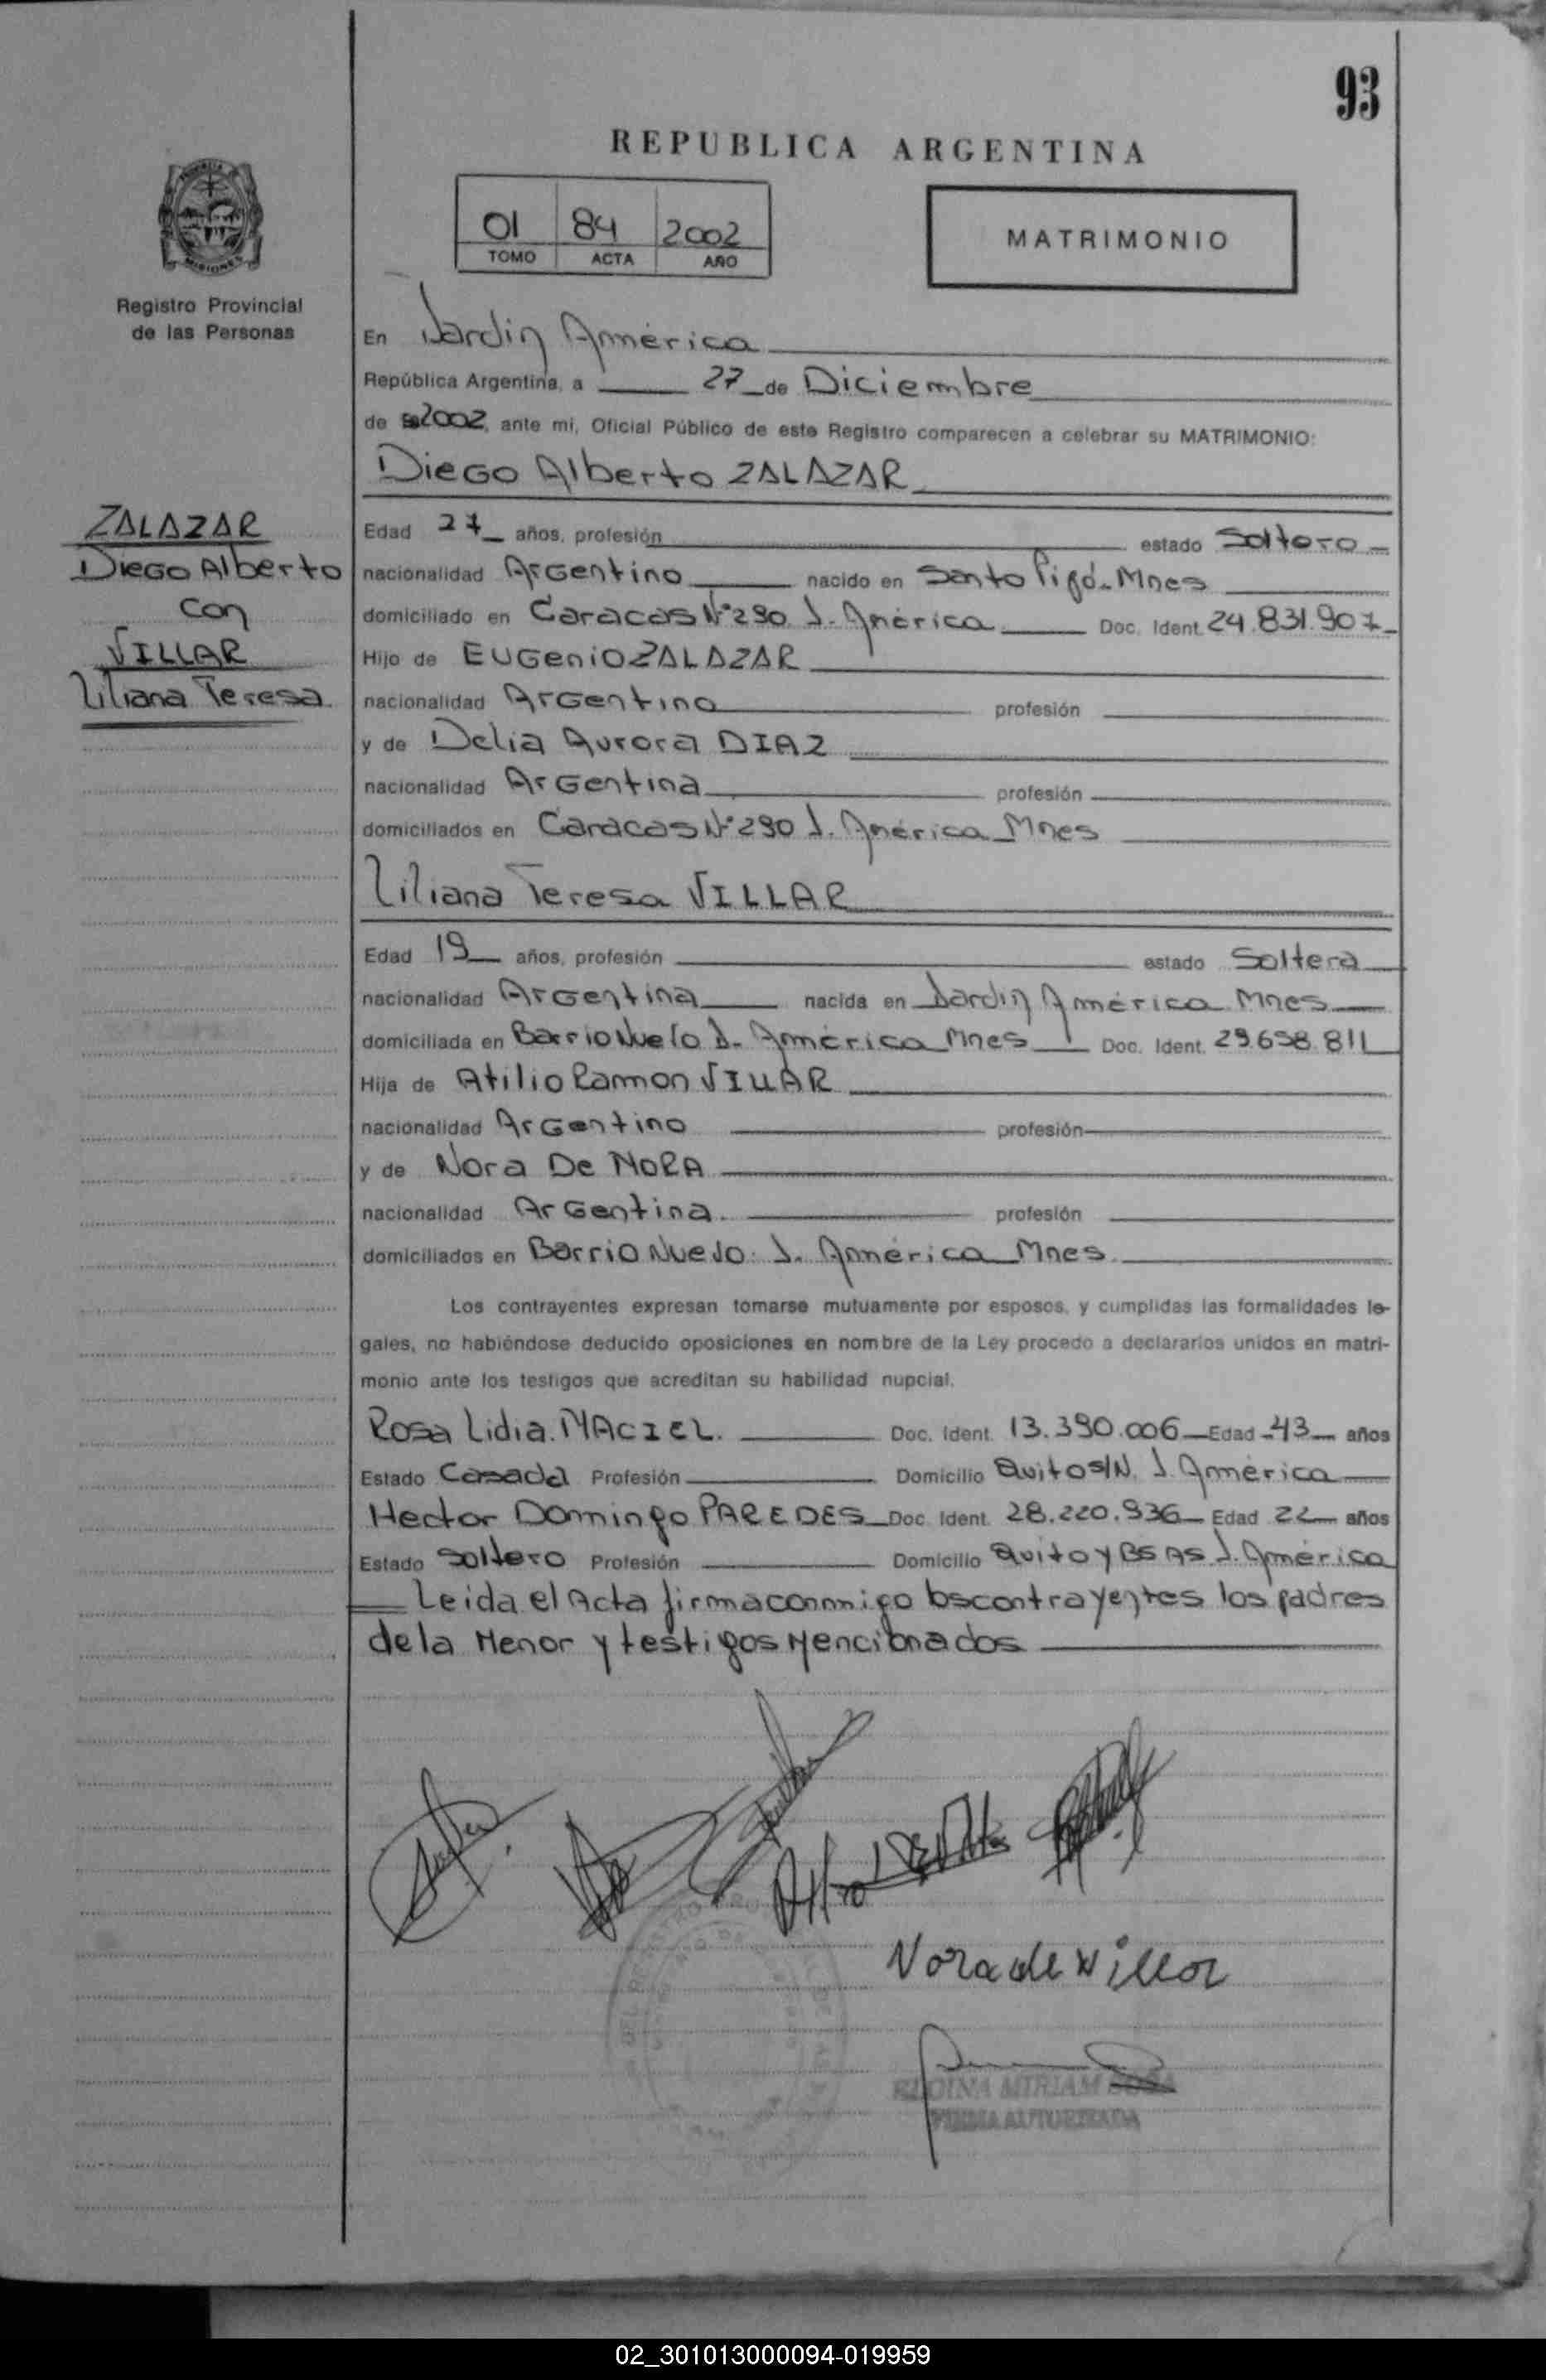 93
REPUBLICA ARGENTINA
01 84 2002
TOMO ACTA AÑO
MATRIMONIO
Registro Provincial
de las Personas
En Jardín América
República Argentina, a 27 de Diciembre
de 2002, ante mí, Oficial Público de este Registro comparecen a celebrar su MATRIMONIO:
Diego Alberto ZALAZAR
ZALAZAR
Diego Alberto
con
VILLAR
Liliana Teresa.
Edad 27 años, profesión estado Soltero
nacionalidad Argentino nacido en Santo Pipó-Mnes
domiciliado en Caracas N°290 J. América Doc. Ident. 24.831.907
Hijo de EUGenio ZALAZAR
nacionalidad Argentino profesión
y de Delia Aurora DIAZ
nacionalidad Argentina profesión
domiciliados en Caracas N°290 J. América Mnes
Liliana Teresa VILLAR
Edad 19 años, profesión estado Soltera
nacionalidad Argentina nacida en Jardín América Mnes
domiciliada en Barrio Nuevo J. América Mnes Doc. Ident. 29.658.811
Hija de Atilio Ramon VILLAR
nacionalidad Argentino profesión
y de Nora De MORA
nacionalidad Argentina. profesión
domiciliados en Barrio Nuevo. J. América Mnes.
Los contrayentes expresan tomarse mutuamente por esposos, y cumplidas las formalidades le-
gales, no habiéndose deducido oposiciones en nombre de la Ley procedo a declararlos unidos en matri-
monio ante los testigos que acreditan su habilidad nupcial.
Rosa Lidia MACIEL. Doc. Ident. 13.390.006 Edad 43 años
Estado Casada Profesión Domicilio Quito S/N. J. América
Hector Domingo PAREDES Doc. Ident. 28.220.936 Edad 22 años
Estado Soltero Profesión Domicilio Quito y BS AS J. América
Leída el Acta firma conmigo los contrayentes los padres
de la Menor y testigos Mencionados
Nora de Villar
MIRIAM
FIRMA AUTORIZADA
02_301013000094-019959